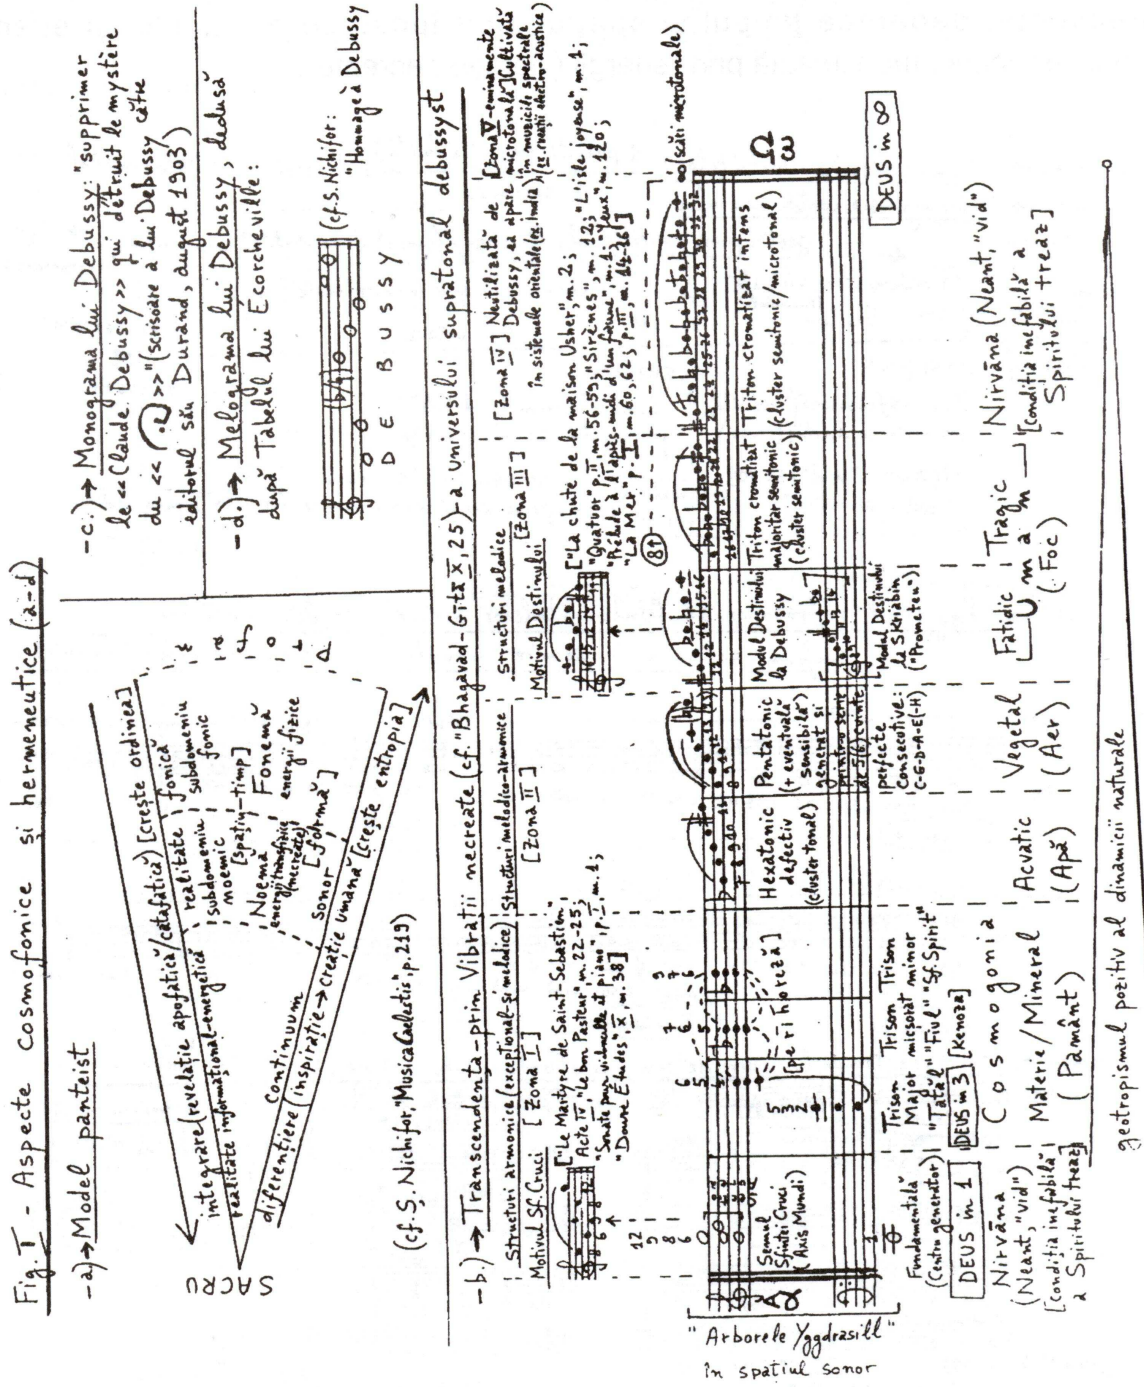 Fig. I - Aspecte cosmofonice și hermeneutice (a-d)
-a)→ Model panteist
SACRU
integrare (revelație apofatică/catafatică) [crește ordinea]
realitate informațional-energetică
realitate fonică
subdomeniu noemic
subdomeniu fonic
[spațiu-timp]
Noema
Fonemă
energii transfizice (necreate)
energii fizice
continuum sonor [formă]
diferențiere (inspirație → creație umană [crește entropia]
(cf. Ș. Nichifor, "Musica Caelestis", p. 219)
-c.)→ Monograma lui Debussy: "supprimer
le << Claude Debussy >> qui détruit le mystère
du << >>" (scrisoare a lui Debussy către
editorul său Durand, august 1903)
-d.)→ Melograma lui Debussy, dedusă
după Tabelul lui Écorcheville:
(cf. Ș. Nichifor:
"Hommage à Debussy
D E B U S S Y
-b.)→ Transcendența-prin Vibrații necreate (cf. "Bhagavad-Gītā X, 25)-a universului supratonal debussyst
Structuri armonice (excepțional-și melodice)
[Zona I]
Motivul Sf. Cruci
["Le Martyre de Saint-Sébastien",
Acte IV, "Le bon Pasteur", m. 22-25;
"Sonate pour violoncelle et piano", p. I, m. 1;
"Douze Études", X, m. 38]
Structuri melodico-armonice
[Zona II]
Structuri melodice
[Zona III]
Motivul Destinului
["La chute de la maison Usher", m. 2;
"Quatuor" p. II, m. 56-59; "Sirènes", m. 12; "L'isle joyeuse", m. 1;
"Prélude à l'après-midi d'un faune", m. 1; "Jeux", m. 120;
"La Mer" p. I, m. 60, 62; p. III, m. 14-16]
[Zona IV] Neutilizată de
Debussy, ea apare
în sistemele orientale (ex. India)
[Zona V - eminamente
microtonală] Cultivată
în muzicile spectrale
(ex. creații electro-acustice)
12
9
8
6
8↑
∞ (scări microtonale)
Α
α
Semnul
Sfintei Cruci
(Axis Mundi)
[perihoreză]
Hexatonic
defectiv
(cluster tonal)
Pentatonic
(+ eventuală
sensibilă)
generat și
printr-o serie
de 5(6) cvinte
perfecte
consecutive:
C-G-D-A-E(-H)
Modul Destinului
la Debussy
Modul Destinului
la Skriabin
("Prometeu")
Triton cromatizat
majoritar semitonic
(cluster semitonic)
Triton cromatizat intens
(cluster semitonic/microtonal)
Ω
ω
DEUS in ∞
"Arborele Yggdrasill"
în spațiul sonor
Fundamentală
(Centru generator)
DEUS in 1
Nirvāna
(Neant, "vid")
[condiția inefabilă
a Spiritului treaz]
Trison
Major
"Tatăl"
Trison
micșorat
"Fiul"
Trison
minor
"Sf. Spirit"
DEUS in 3 [Kenoza]
Cosmogonia
Materie/Mineral
(Pământ)
Acvatic
(Apă)
Vegetal
(Aer)
Fatidic Tragic
Uman
(Foc)
Nirvāna (Neant, "vid")
[condiția inefabilă a
Spiritului treaz]
geotropismul pozitiv al dinamicii naturale